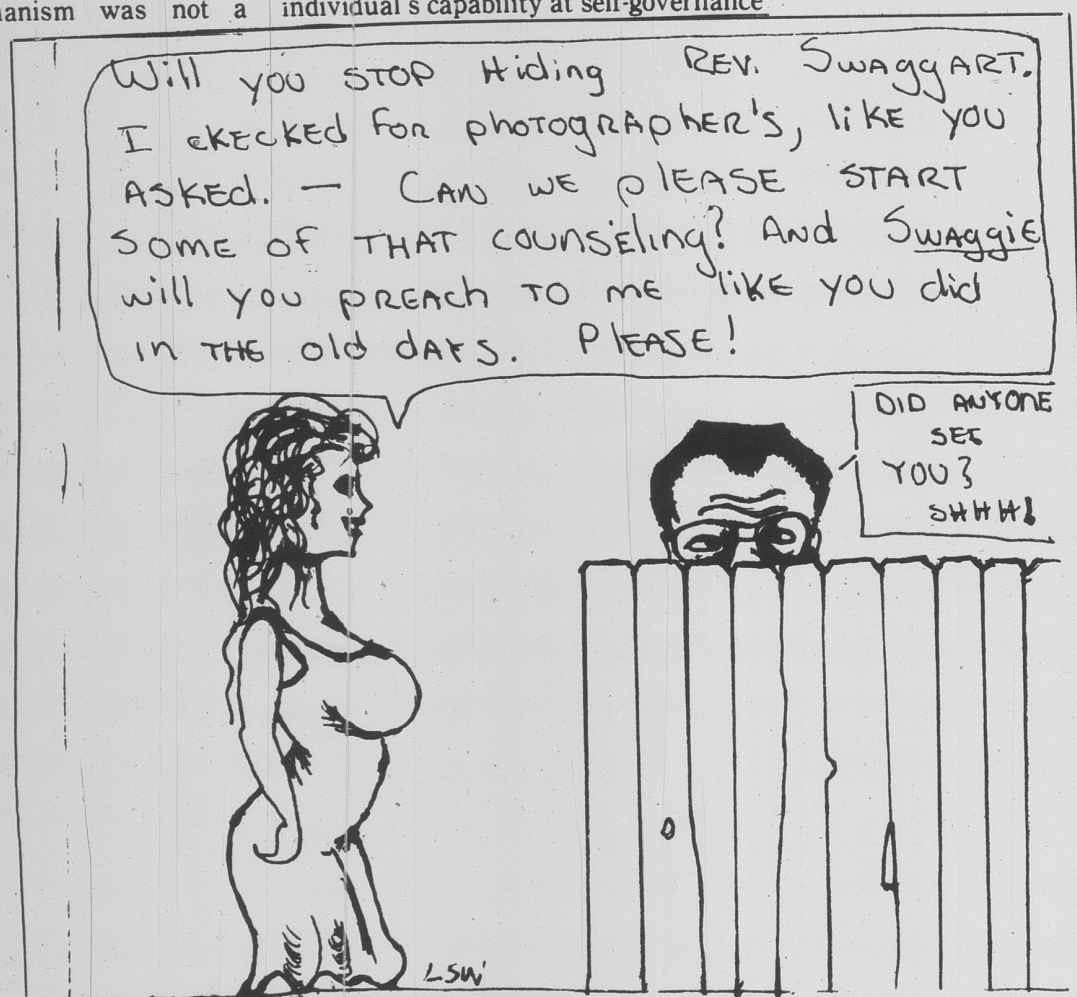 anism was not a individual's capability at self-governance
Will you STOP Hiding REV. SWAggART.
I cKECKEd FOR phOTOgRAphER's, liKE YOU
ASKEd. — CAN WE plEASE START
SOME OF THAT COUNSEling? ANd SWAggiE
will YOU pREAch TO ME liKE YOU did
in THE Old dAYS. PlEASE!
DID ANYONE
SEE
YOU?
SHHH!
LSW